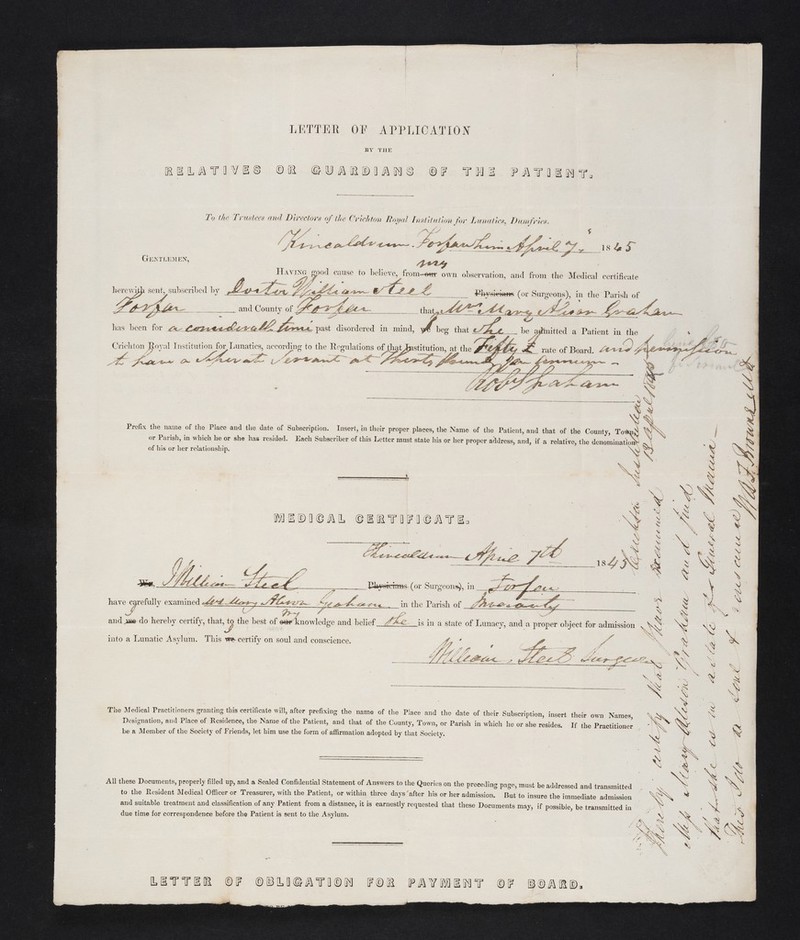 LETTER OF APPLICATION
BY THE
RELATIVES OR GUARDIANS OF THE PATIENT.
To the Trustees and Directors of the Crichton Royal Institution for Lunatics, Dumfries.
Kincaldrum Forfarshire April 7, 1845
GENTLEMEN,
my
HAVING good cause to believe, from our own observation, and from the Medical certificate
herewith sent, subscribed by Doctor William Steel Physician (or Surgeons), in the Parish of
Forfar and County of Forfar that Mrs Mary Alison Graham
has been for a considerable time past disordered in mind, we beg that she be admitted a Patient in the
Crichton Royal Institution for Lunatics, according to the Regulations of that Institution, at the Fifty £ rate of Board. and permission
to have a Servant at Thirty Pounds per annum
Robt Graham
Prefix the name of the Place and the date of Subscription. Insert, in their proper places, the Name of the Patient, and that of the County, Town,
or Parish, in which he or she has resided. Each Subscriber of this Letter must state his or her proper address, and, if a relative, the denomination
of his or her relationship.
MEDICAL CERTIFICATE.
Kincaldrum April 7th 1845
We, I William Steel Physicians (or Surgeons), in Forfar
have carefully examined Mary Alison Graham in the Parish of Inverarity
my
and we do hereby certify, that, to the best of our knowledge and belief she is in a state of Lunacy, and a proper object for admission
into a Lunatic Asylum. This we certify on soul and conscience.
William Steel Surgeon
The Medical Practitioners granting this certificate will, after prefixing the name of the Place and the date of their Subscription, insert their own Names,
Designation, and Place of Residence, the Name of the Patient, and that of the County, Town, or Parish in which he or she resides. If the Practitioner
be a Member of the Society of Friends, let him use the form of affirmation adopted by that Society.
All these Documents, properly filled up, and a Sealed Confidential Statement of Answers to the Queries on the preceding page, must be addressed and transmitted
to the Resident Medical Officer or Treasurer, with the Patient, or within three days after his or her admission. But to insure the immediate admission
and suitable treatment and classification of any Patient from a distance, it is earnestly requested that these Documents may, if possible, be transmitted in
due time for correspondence before the Patient is sent to the Asylum.
LETTER OF OBLIGATION FOR PAYMENT OF BOARD.
Crichton Institution 13 April 1845
I hereby certify that I have examined
Miss Mary Alison Graham and find
that she is in a state of General Mania
This I do on soul & conscience
W A F Browne M.D.